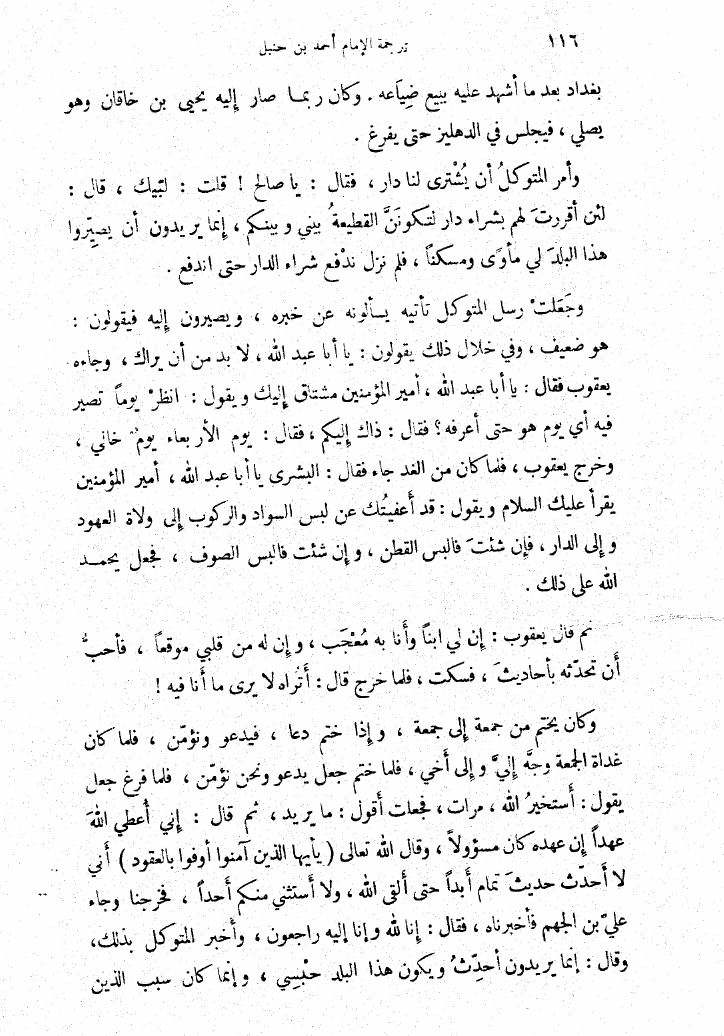 ١١٦ ترجمة الإمام أحمد بن حنبل
بغداد بعد ما أشهد عليه ببيع ضِيَاعه . وكان ربمـا صار إليه يحيى بن خاقان وهو
يصلي ، فيجلس في الدهليز حتى يفرغ .
وأمر المتوكلُ أن يُشْترى لنا دار ، فقال : يا صالح ! قلت : لبّيك ، قال :
لئن أقررتَ لهم بشراء دار لتكونَنَّ القطيعةُ بيني وبينكم ، إنما يريدون أن يصيِّروا
هذا البلدَ لي مأوًى ومسكناً ، فلم نزل ندْفع شراء الدار حتى اندفع .
وجَعَلتْ رسل المتوكل تأتيه يسألونه عن خبره ، ويصيرون إليه فيقولون :
هو ضعيف ، وفي خلال ذلك يقولون : يا أبا عبد الله ، لا بد من أن يراك ، وجاءه
يعقوب فقال : يا أبا عبد الله ، أمير المؤمنين مشتاق إليك ويقول : انظرْ يوماً تصير
فيه أي يوم هو حتى أعرفه ؟ فقال : ذاك إليكم ، فقال : يوم الأربعاء يوم خاني ،
وخرج يعقوب ، فلما كان من الغد جاء فقال : البشرى يا أبا عبد الله ، أمير المؤمنين
يقرأ عليك السلام ويقول : قد أعفيتُك عن لبس السواد والركوب إلى ولاة العهود
وإلى الدار ، فإن شئتَ فالبس القطن ، وإن شئت فالبس الصوف ، فجعل يحمـد
الله على ذلك .
ثم قال يعقوب : إن لي ابناً وأنا به مُعْجَب ، وإن له من قلبي موقعاً ، فأحبُّ
أن تحدّثه بأحاديثَ ، فسكت ، فلما خرج قال : أتُراه لا يرى ما أنا فيه !
وكان يختم من جمعة إلى جمعة ، وإذا ختم دعا ، فيدعو ونؤمّن ، فلما كان
غداة الجمعة وجَّه إليَّ وإلى أخي ، فلما ختم جعل يدعو ونحن نؤمّن ، فلما فرغ جعل
يقول : أستخيرُ الله ، مرات ، فجعلت أقول : ما يريد ، ثم قال : إني أُعطي اللهَ
عهداً إن عهده كان مسؤولاً ، وقال الله تعالى ( يأيها الذين آمنوا أوفوا بالعقود ) أني
لا أحدّث حديثَ تمام أبداً حتى ألقى الله ، ولا أستثني منكم أحداً ، فخرجنا وجاء
عليّ بن الجهم فأخبرناه ، فقال : إنا لله وإنا إليه راجعون ، وأُخبر المتوكل بذلك،
وقال : إنما يريدون أحدِّثُ ويكون هذا البلد حبْسِي ، وإنما كان سبب الذين